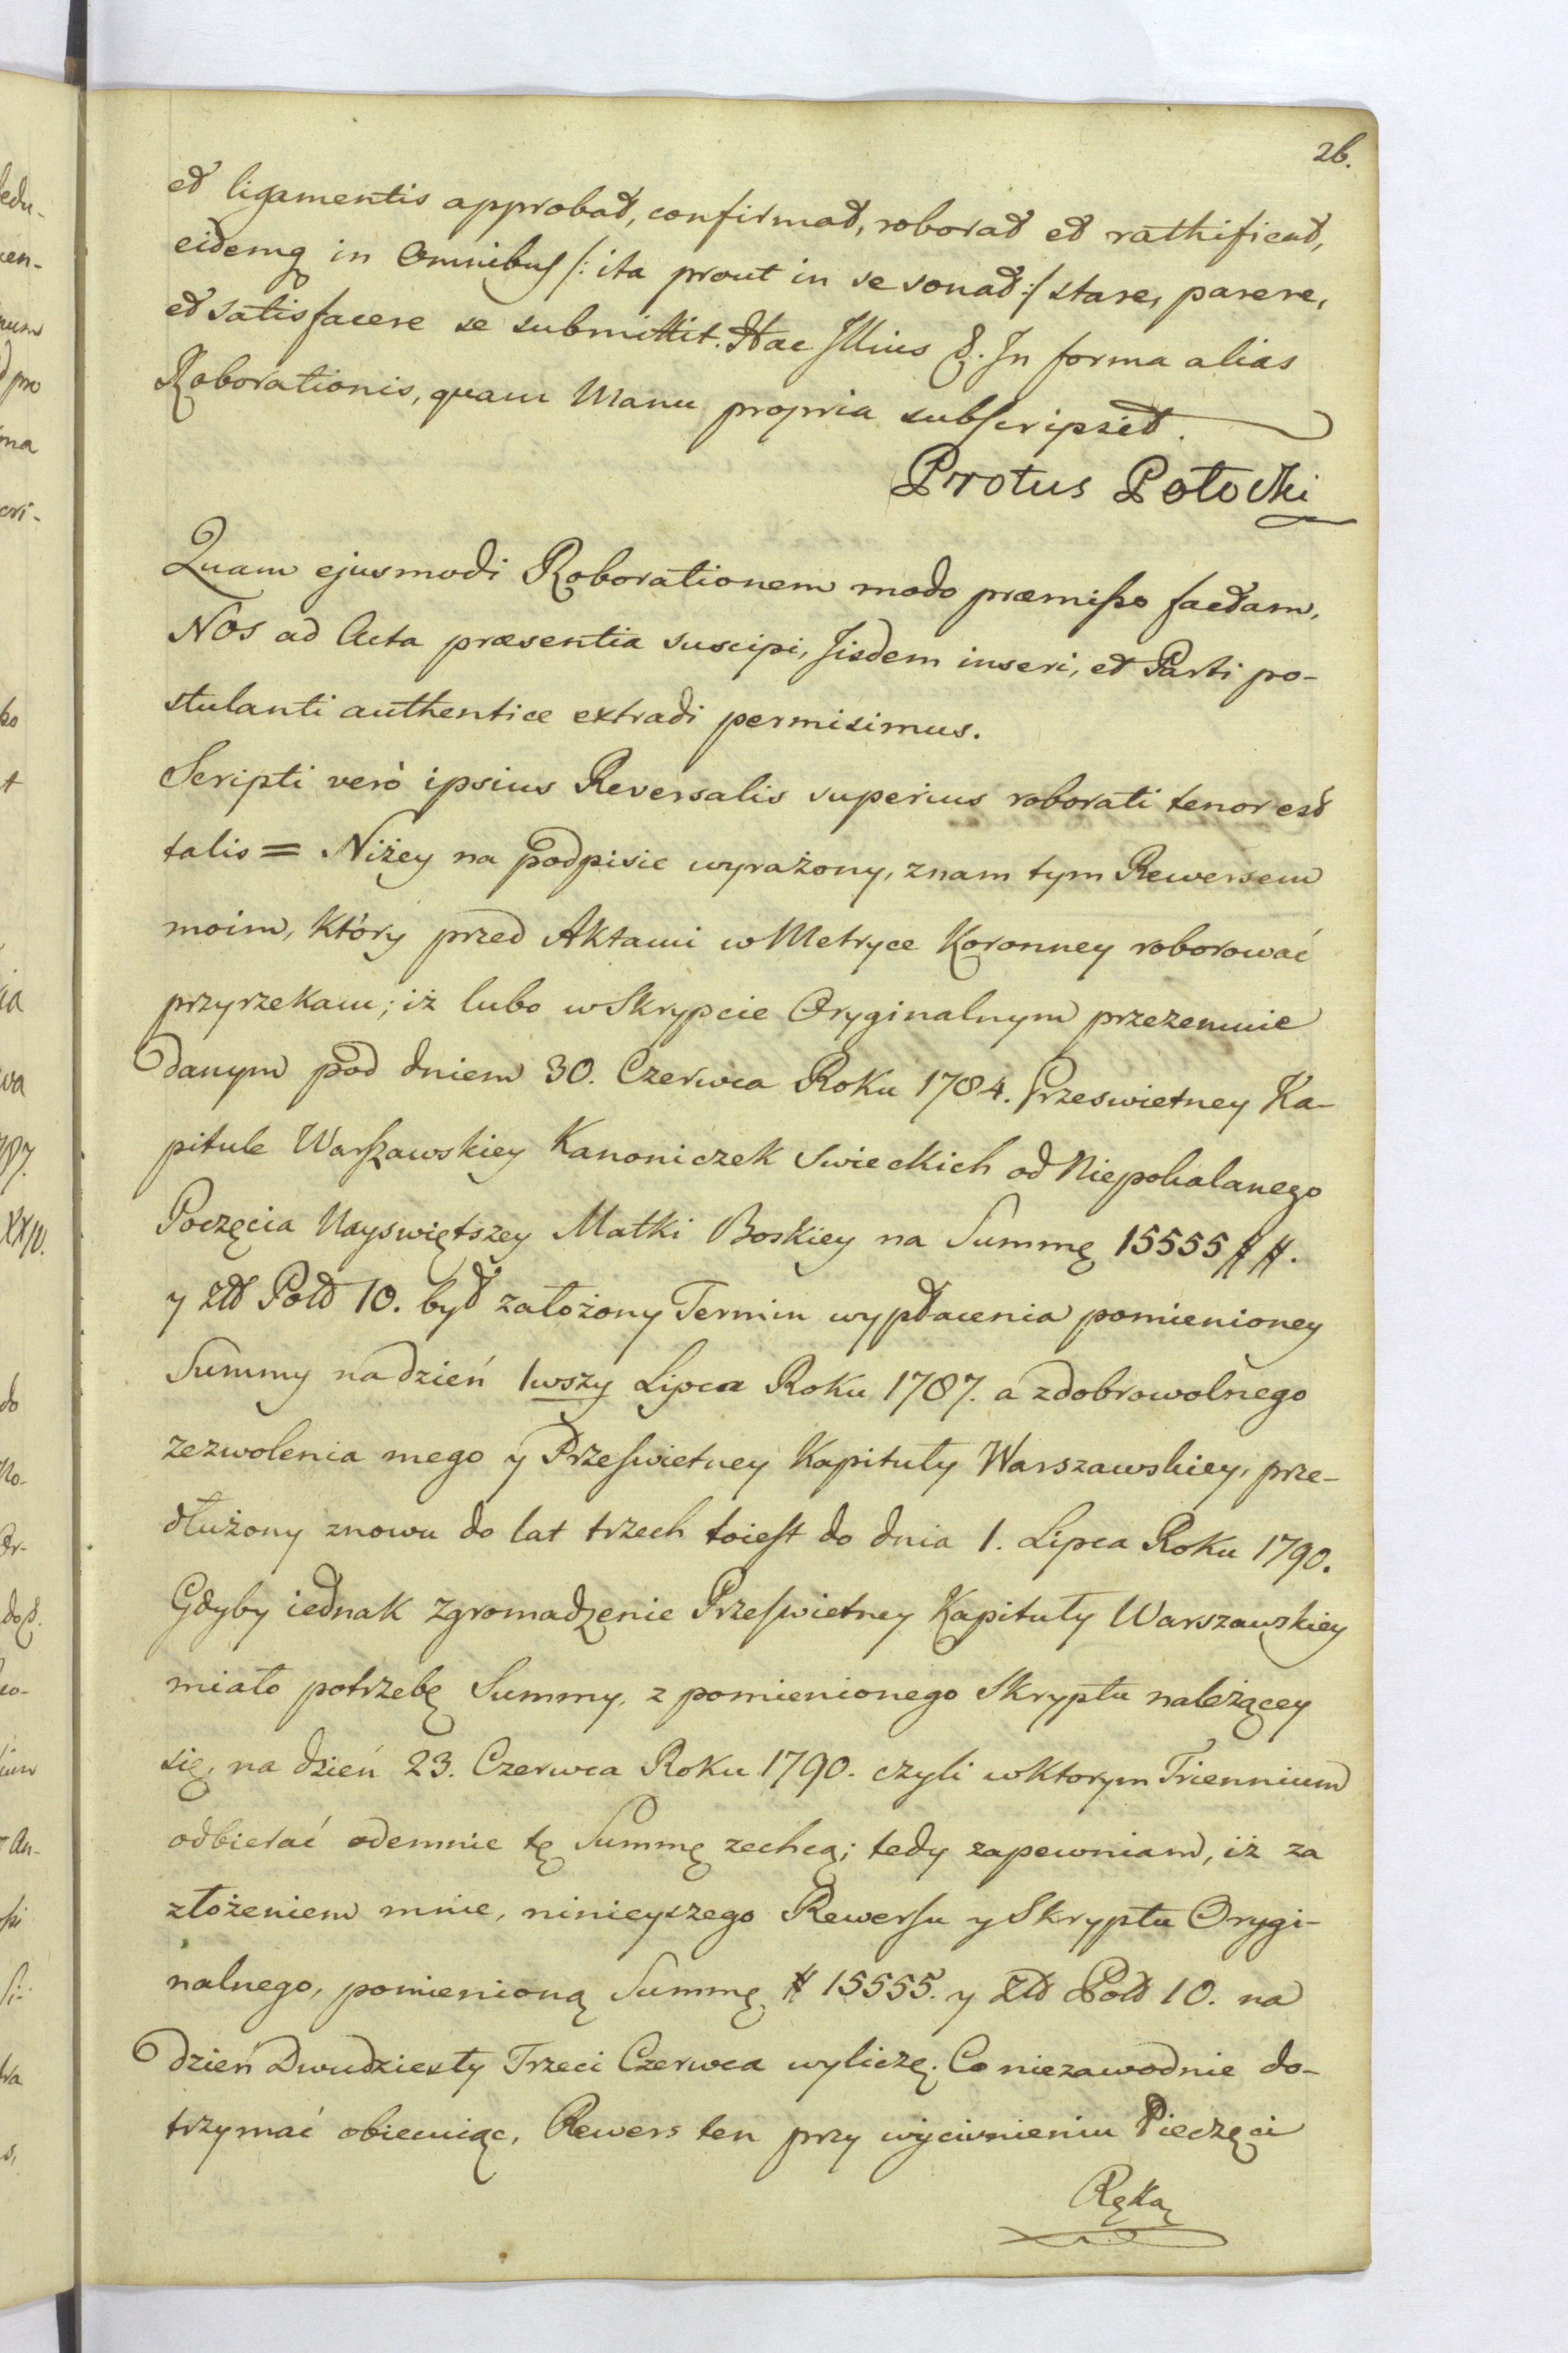 26.
et ligamentis approbat, confirmat, roborat et rathificat,
eidemq in Omnibus /: ita prout in se sonat :/ stare, parere,
et satisfacere se submittit. Hac Illius &. In forma alias
Roborationis, quam Manu propria subscripsit.
Protus Potocki
Quam ejusmodi Roborationem modo præmisso factam,
Nos ad Acta præsentia suscipi, Iisdem inseri, et Parti po-
stulanti authentice extradi permisimus.
Scripti verò ipsius Reversalis superius roborati tenor est
talis = Niżey na podpisie wyrażony, znam tym Rewersem
moim, który przed Aktami w Metryce Koronney roborować
przyrzekam; iż lubo w Skrypcie Oryginalnym przezemnie
danym pod dniem 30. Czerwca Roku 1784. Przeswietney Ka-
pitule Warszawskiey Kanoniczek Swieckich od Niepokalanego
Poczęcia Nayswiętszey Matki Boskiey na Summę 15555 ##.
y Złł Poll 10. był założony Termin wypłacenia pomienioney
Summy na dzień 1wszy Lipca Roku 1787. a z dobrowolnego
zezwolenia mego y Przeswietney Kapituły Warszawskiey, prze-
dłużony znowu do lat trzech toiest do dnia 1. Lipca Roku 1790.
Gdyby iednak Zgromadzenie Przeswietney Kapituły Warszawskiey
miało potrzebę Summy, z pomienionego Skryptu należącey
się, na dzień 23. Czerwca Roku 1790. czyli w ktorym Triennium
odbierać odemnie tę Summę zechcą; tedy zapewniam, iż za
złożeniem mnie, ninieyszego Rewersu y Skryptu Orygi-
nalnego, pomienioną Summę # 15555. y Złł Poll 10. na
dzień Dwudziesty Trzeci Czerwca wyliczę. Co niezawodnie do-
trzymać obiecuiąc, Rewers ten przy wyciśnieniu Pieczęci
Ręką